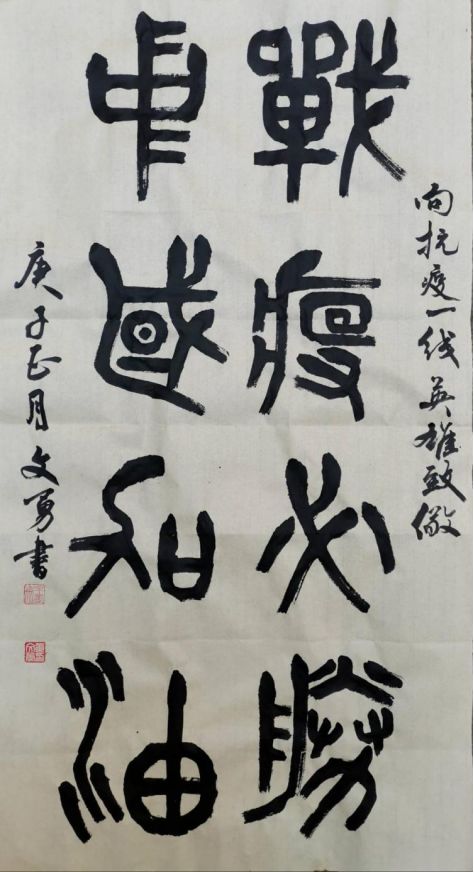 向抗疫一线英雄致敬
戰疫必勝
中國加油
庚子正月文勇書